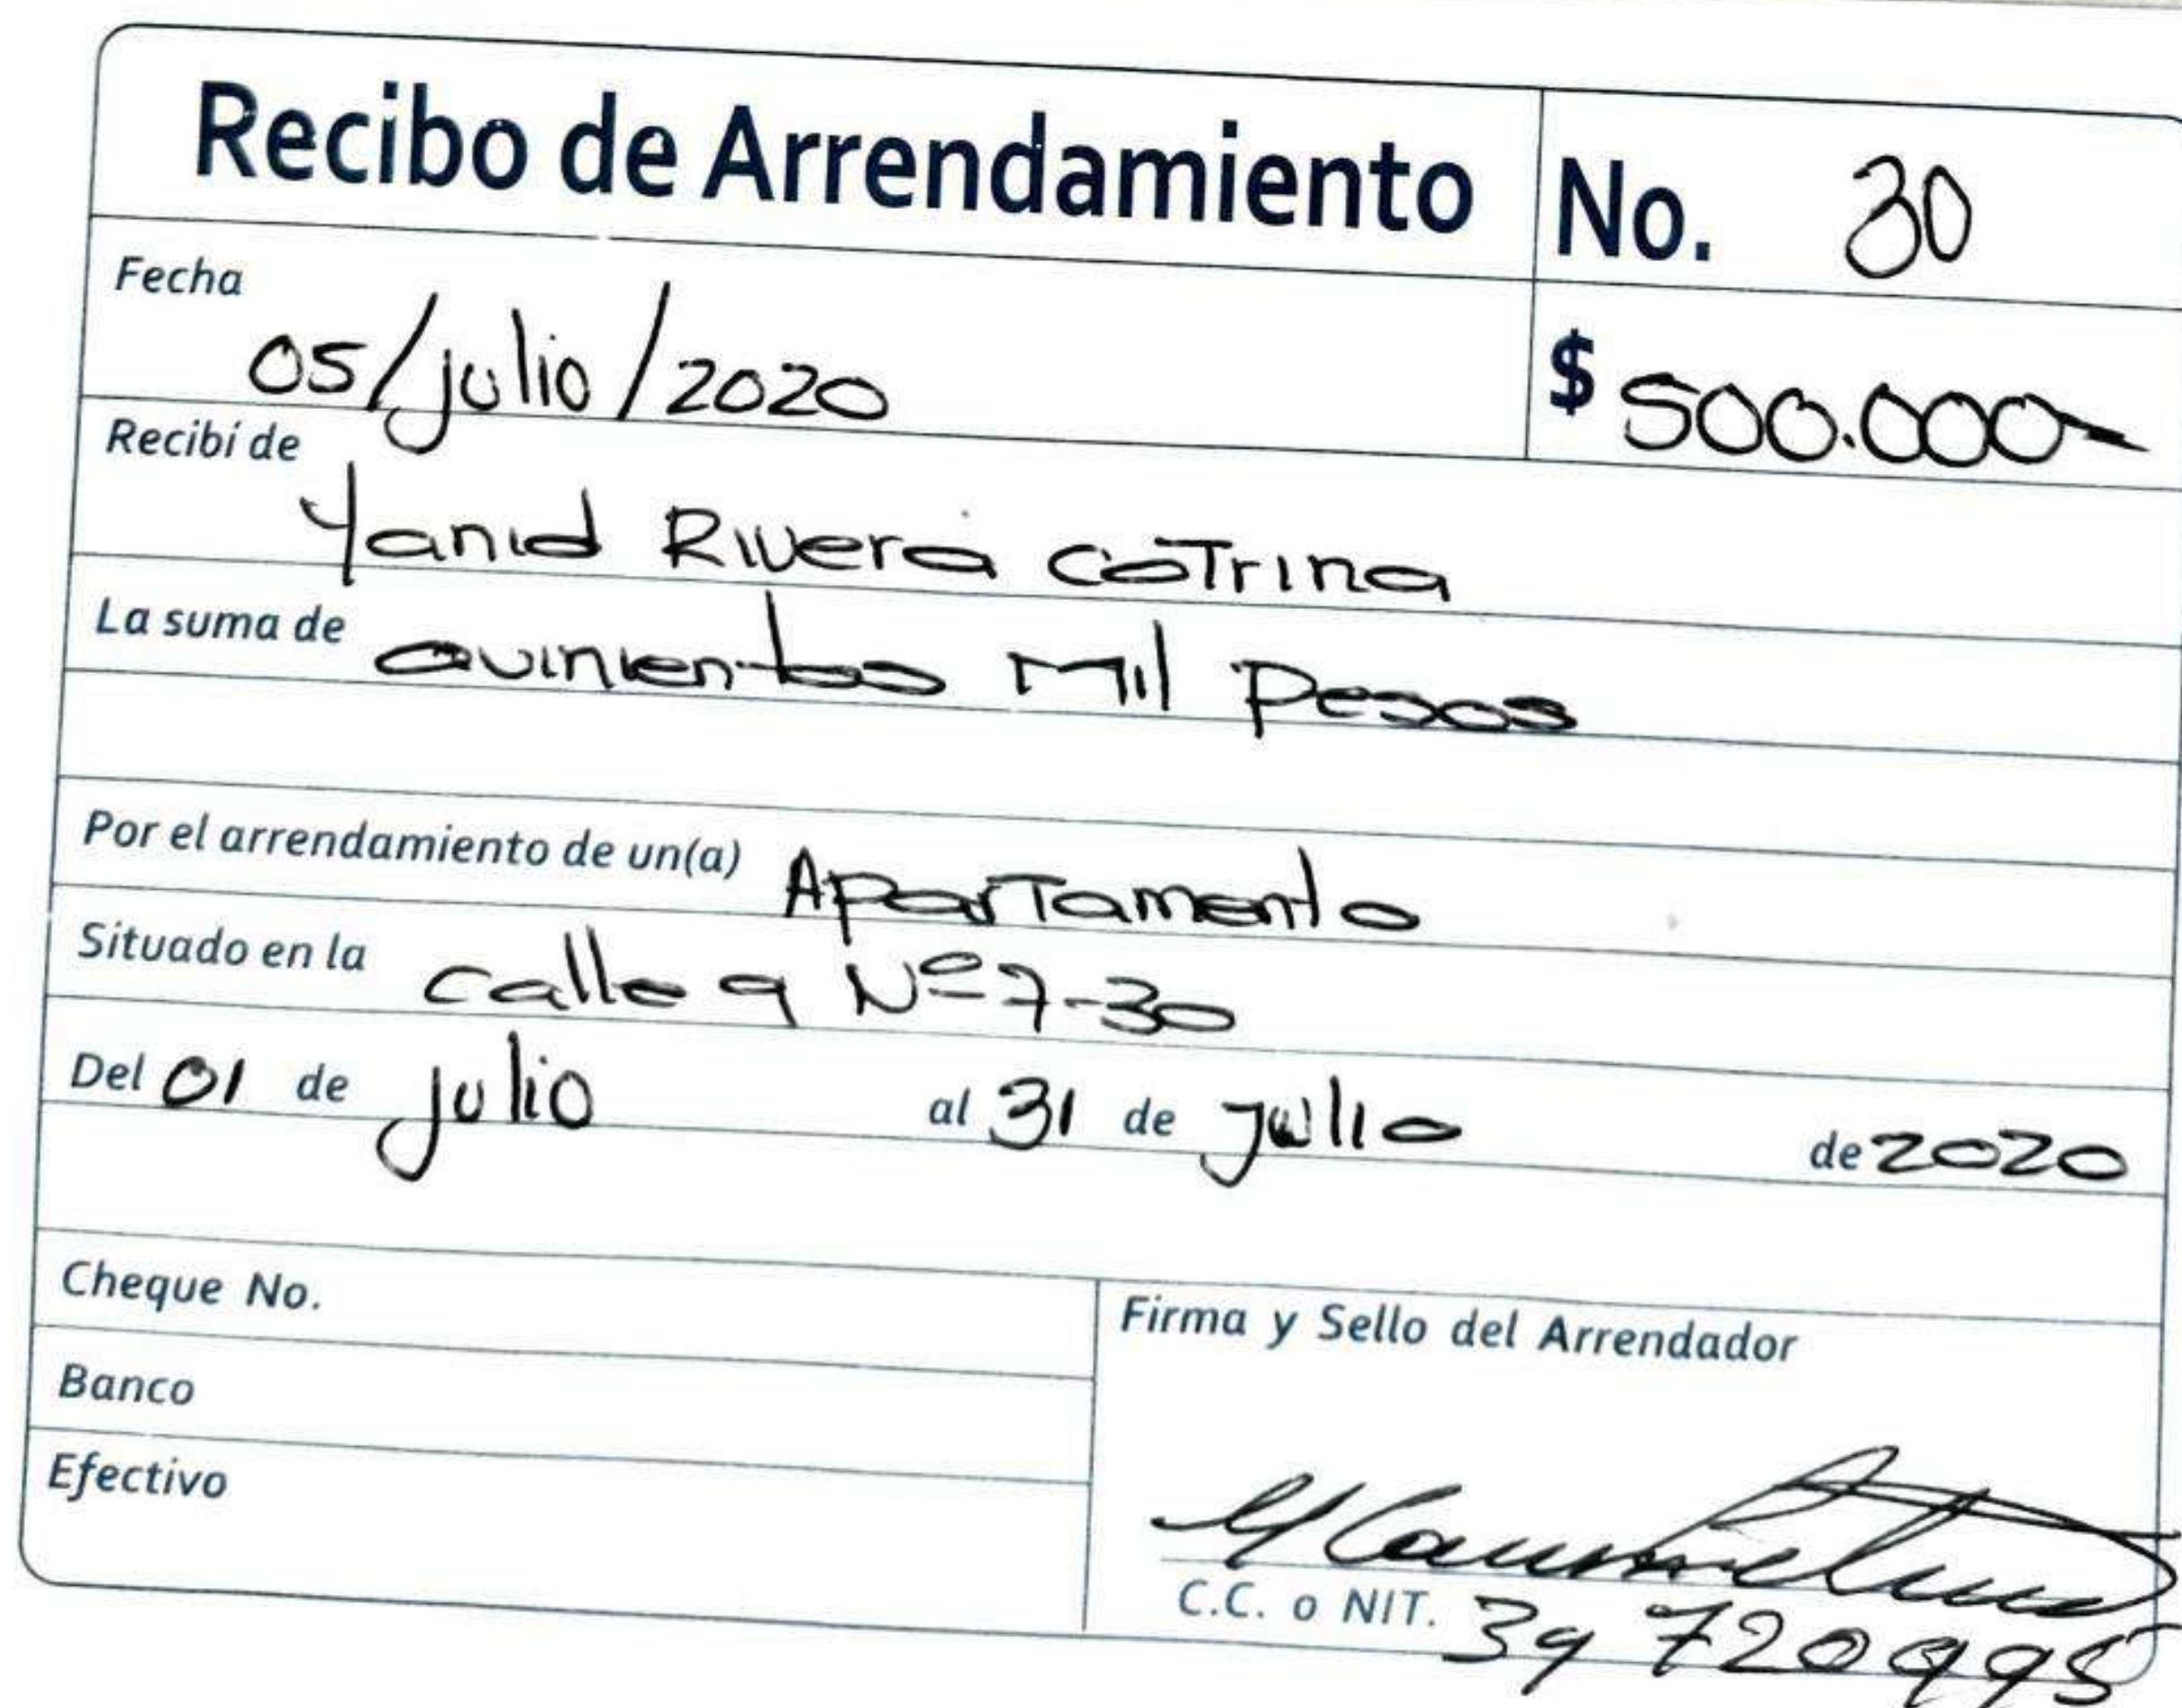 Recibo de Arrendamiento No. 30
Fecha 05/julio/2020 $ 500.000-
Recibí de Yanid Rivera coTrina
La suma de Quinientos Mil Pesos
Por el arrendamiento de un(a) AparTamento
Situado en la calle 9 Nº 7-30
Del 01 de julio al 31 de Julio de 2020
Cheque No.
Firma y Sello del Arrendador
Banco
Efectivo
C.C. o NIT. 39 720995